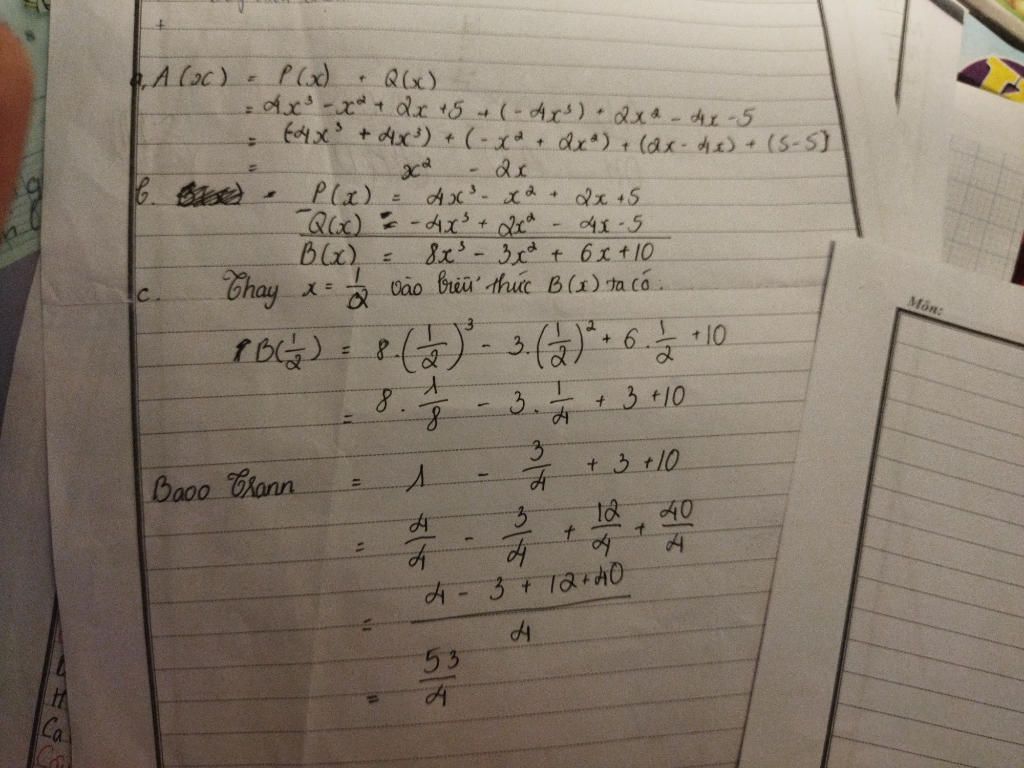 +
a, A(x) = P(x) + Q(x)
= 4x³ - x² + 2x + 5 + (-4x³) + 2x² - 4x - 5
= (-4x³ + 4x³) + (-x² + 2x²) + (2x - 4x) + (5-5]
= x² - 2x
b. - P(x) = 4x³ - x² + 2x + 5
Q(x) = -4x³ + 2x² - 4x - 5
B(x) = 8x³ - 3x² + 6x + 10
c. Thay x = 1/2 vào biểu thức B(x) ta có:
B(1/2) = 8.(1/2)³ - 3.(1/2)² + 6.1/2 + 10
= 8.1/8 - 3.1/4 + 3 + 10
Baoo Trann = 1 - 3/4 + 3 + 10
= 4/4 - 3/4 + 12/4 + 40/4
= (4 - 3 + 12 + 40)/4
= 53/4
Môn:
H
Ca